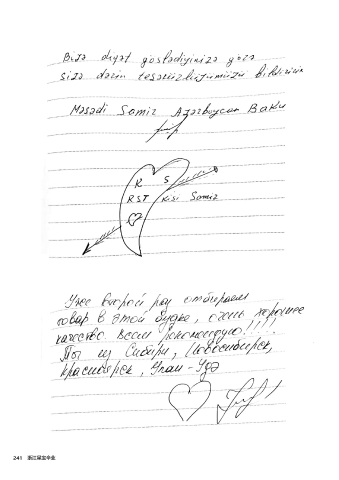 Bizə diqət göstədiyinizə görə
sizə dərin təşəkkürümüzü bildiririk
Məşədi Samir Azərbaycan Baku
R S
RST Kişi Samir
Уже второй раз отбираем
товар в этой будке, очень хорошее
качество всем рекомендую!!!!
Мы из Сибири, Новосибирск,
Красноярск, Улан-Удэ
241 浙江星宝伞业